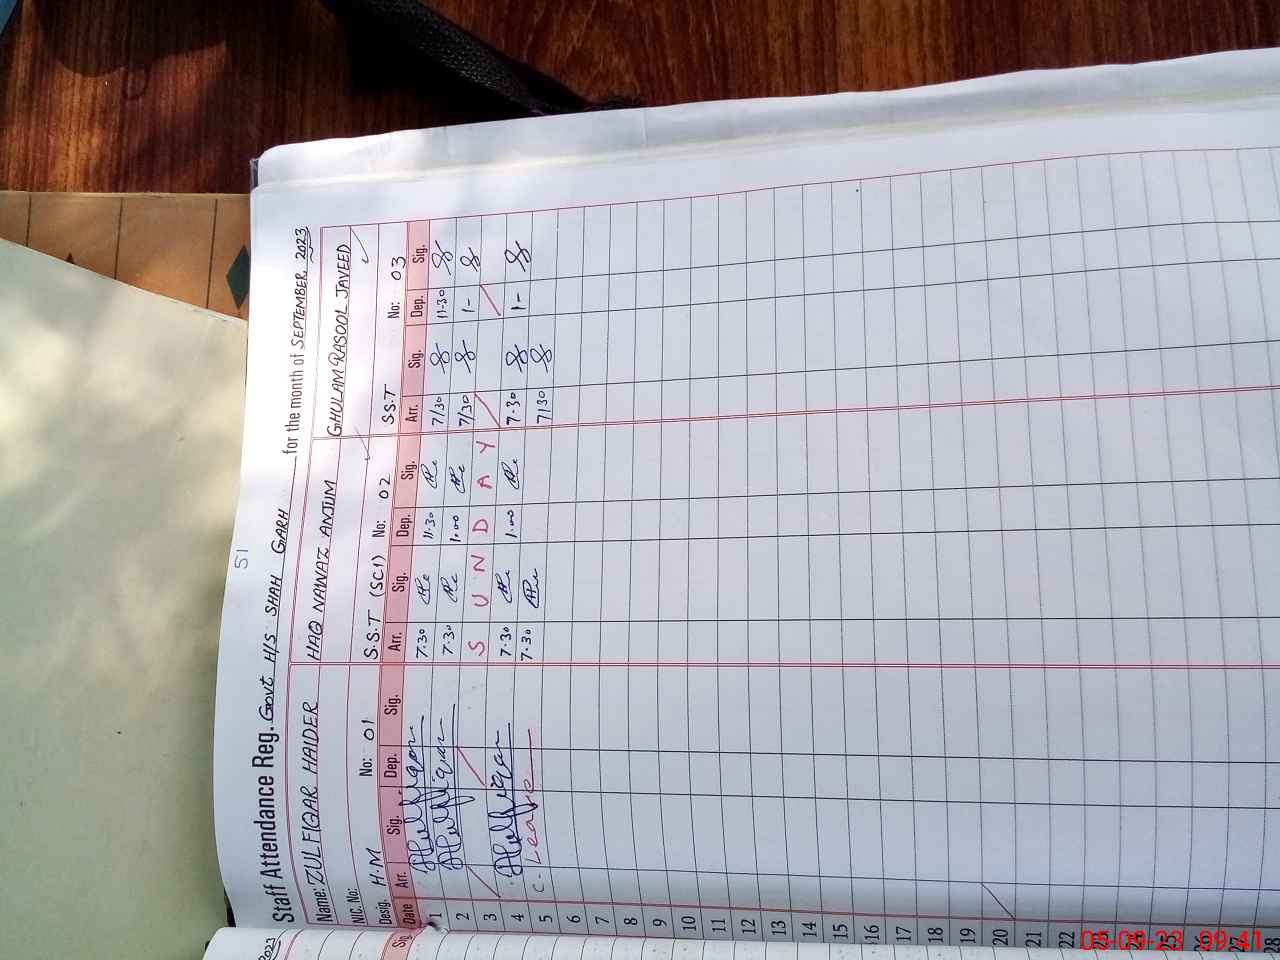 51
Staff Attendance Reg. Govt H/S SHAH GARH for the month of SEPTEMBER 2023
Name: ZULFIQAR HAIDER HAQ NAWAZ ANJUM GHULAM RASOOL JAVEED
NIC. No: No: 01 S.S.T (SCI) No: 02 S.S.T No: 03
Desig. H.M
Date Arr. Sig. Dep. Sig. Arr. Sig. Dep. Sig. Arr. Sig. Dep. Sig.
1 Zulfiqar 7.30 11.30 7/30 11-30
2 Zulfiqar 7.30 1.00 7/30 1-
3 S U N D A Y
4 Zulfiqar 7.30 1.00 7.30 1-
5 C. Leave 7.30 7/30
6
7
8
9
10
11
12
13
14
15
16
17
18
19
20
21
22
25
26
27
28
2023
Sig.
05-09-23 09:41